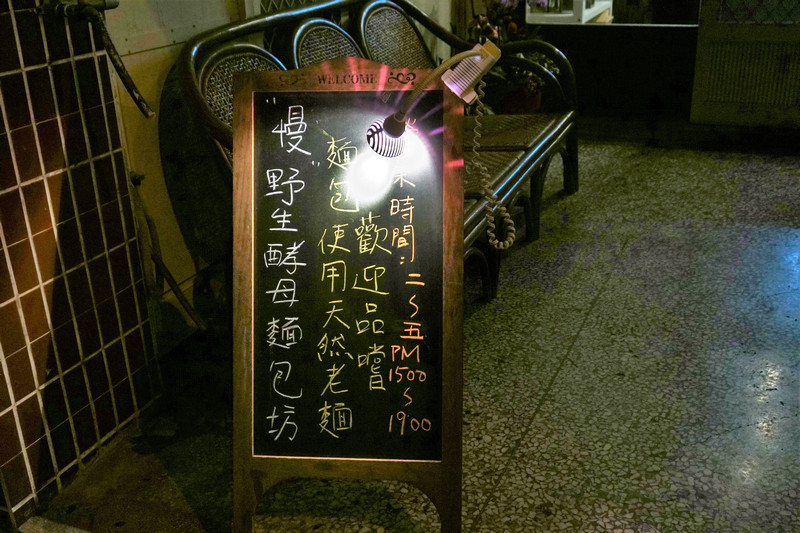 WELCOME
"慢"野生酵母麵包坊
麵包使用天然老麵
歡迎品嚐
時間:二~五
PM
1500
~
1900